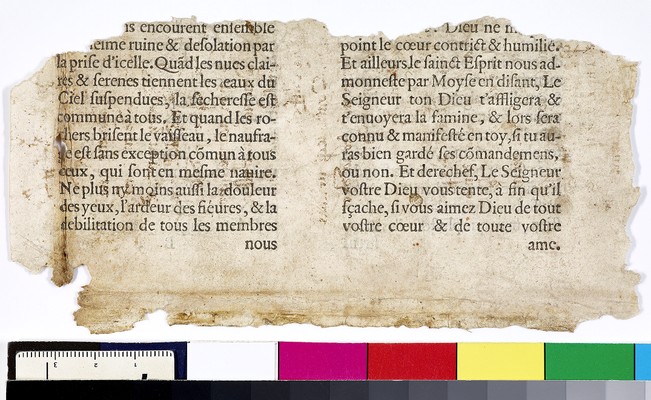 ns encourent ensemble
eime ruine & desolation par
la prise d'icelle. Quãd les nues clai-
res & serenes tiennent les eaux du
Ciel suspendues, la secheresse est
commune à tous. Et quand les ro-
chers brisent le vaisseau, le naufra-
ge est sans exception cõmun à tous
ceux, qui sont en mesme nauire.
Ne plus ny moins aussi la douleur
des yeux, l'ardeur des fieures, & la
debilitation de tous les membres
nous
Dieu ne m
point le cœur contrict & humilié.
Et ailleurs le sainct Esprit nous ad-
monneste par Moyse en disant, Le
Seigneur ton Dieu t'affligera &
t'enuoyera la famine, & lors sera
connu & manifesté en toy, si tu au-
ras bien gardé ses cõmandemens,
ou non. Et derechef, Le Seigneur
vostre Dieu vous tente, à fin qu'il
sçache, si vous aimez Dieu de tout
vostre cœur & de toute vostre
ame.
3 2 1